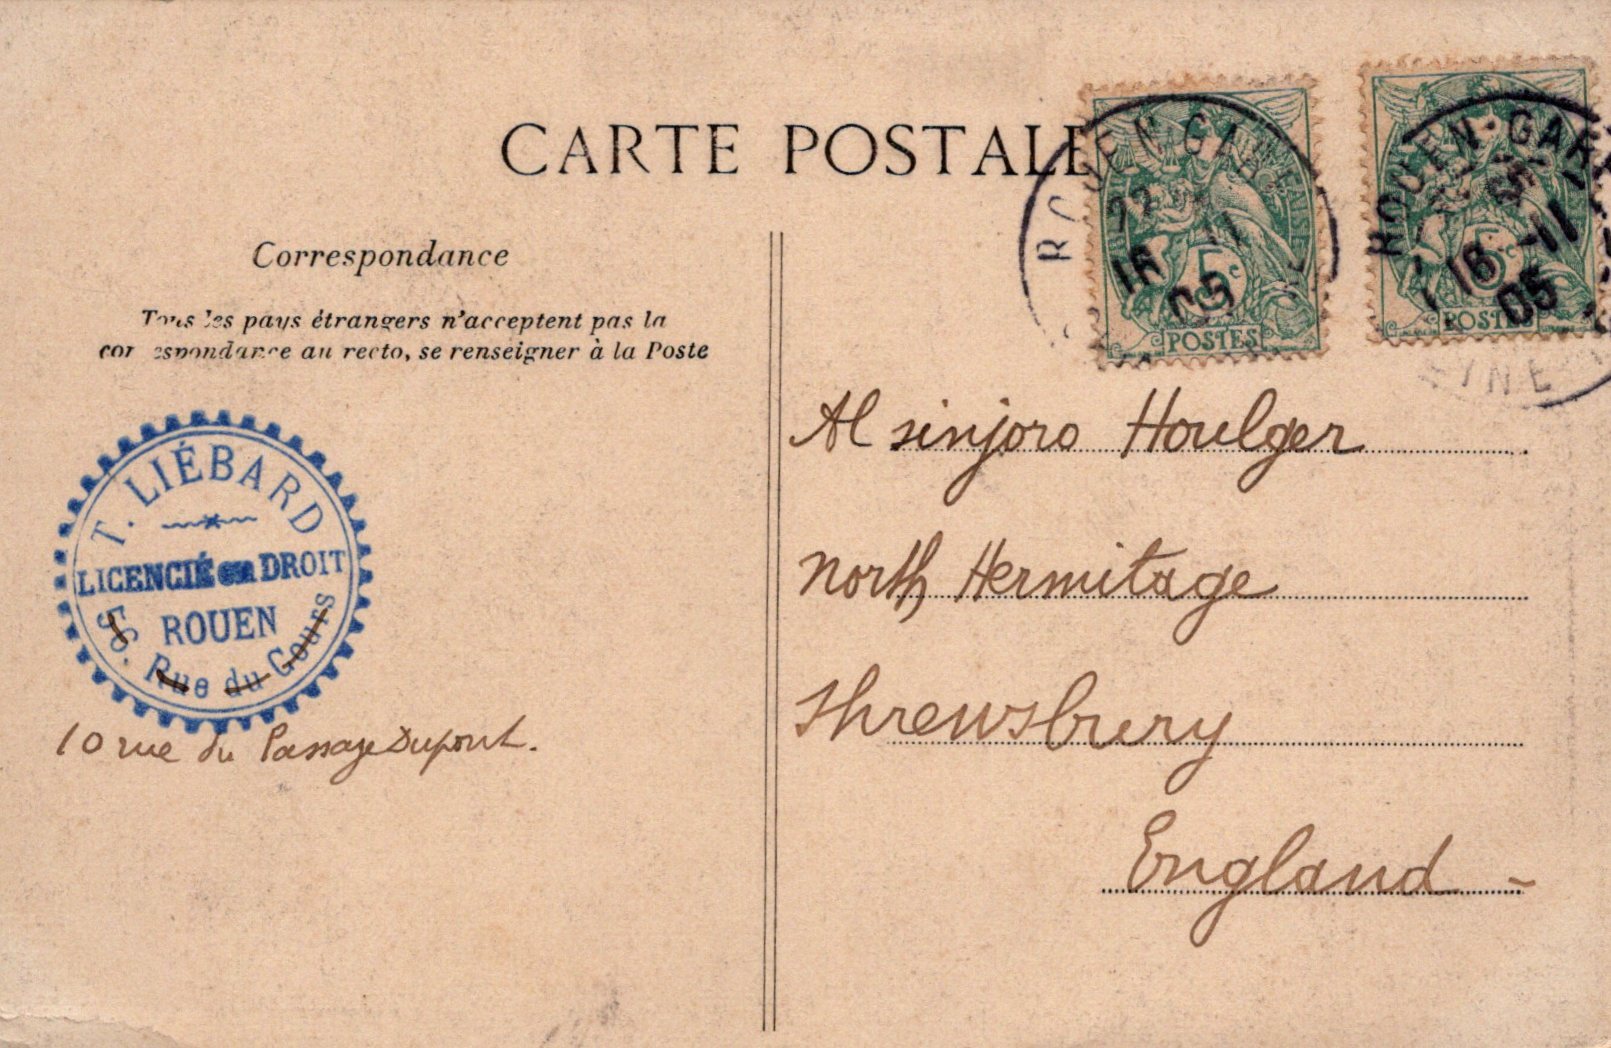 CARTE POSTALE
Correspondance
Tous les pays étrangers n'acceptent pas la
correspondance au recto, se renseigner à la Poste
T. LIÉBARD
LICENCIÉ en DROIT
ROUEN
56. Rue du Cours
10 rue du Passage Dupont.
ROUEN GARE
22
16 11
05
5c
POSTES
ROUEN-GARE
16 -11
05
5c
POSTES
Al sinjoro Houlger
North Hermitage
Shrewsbury
England